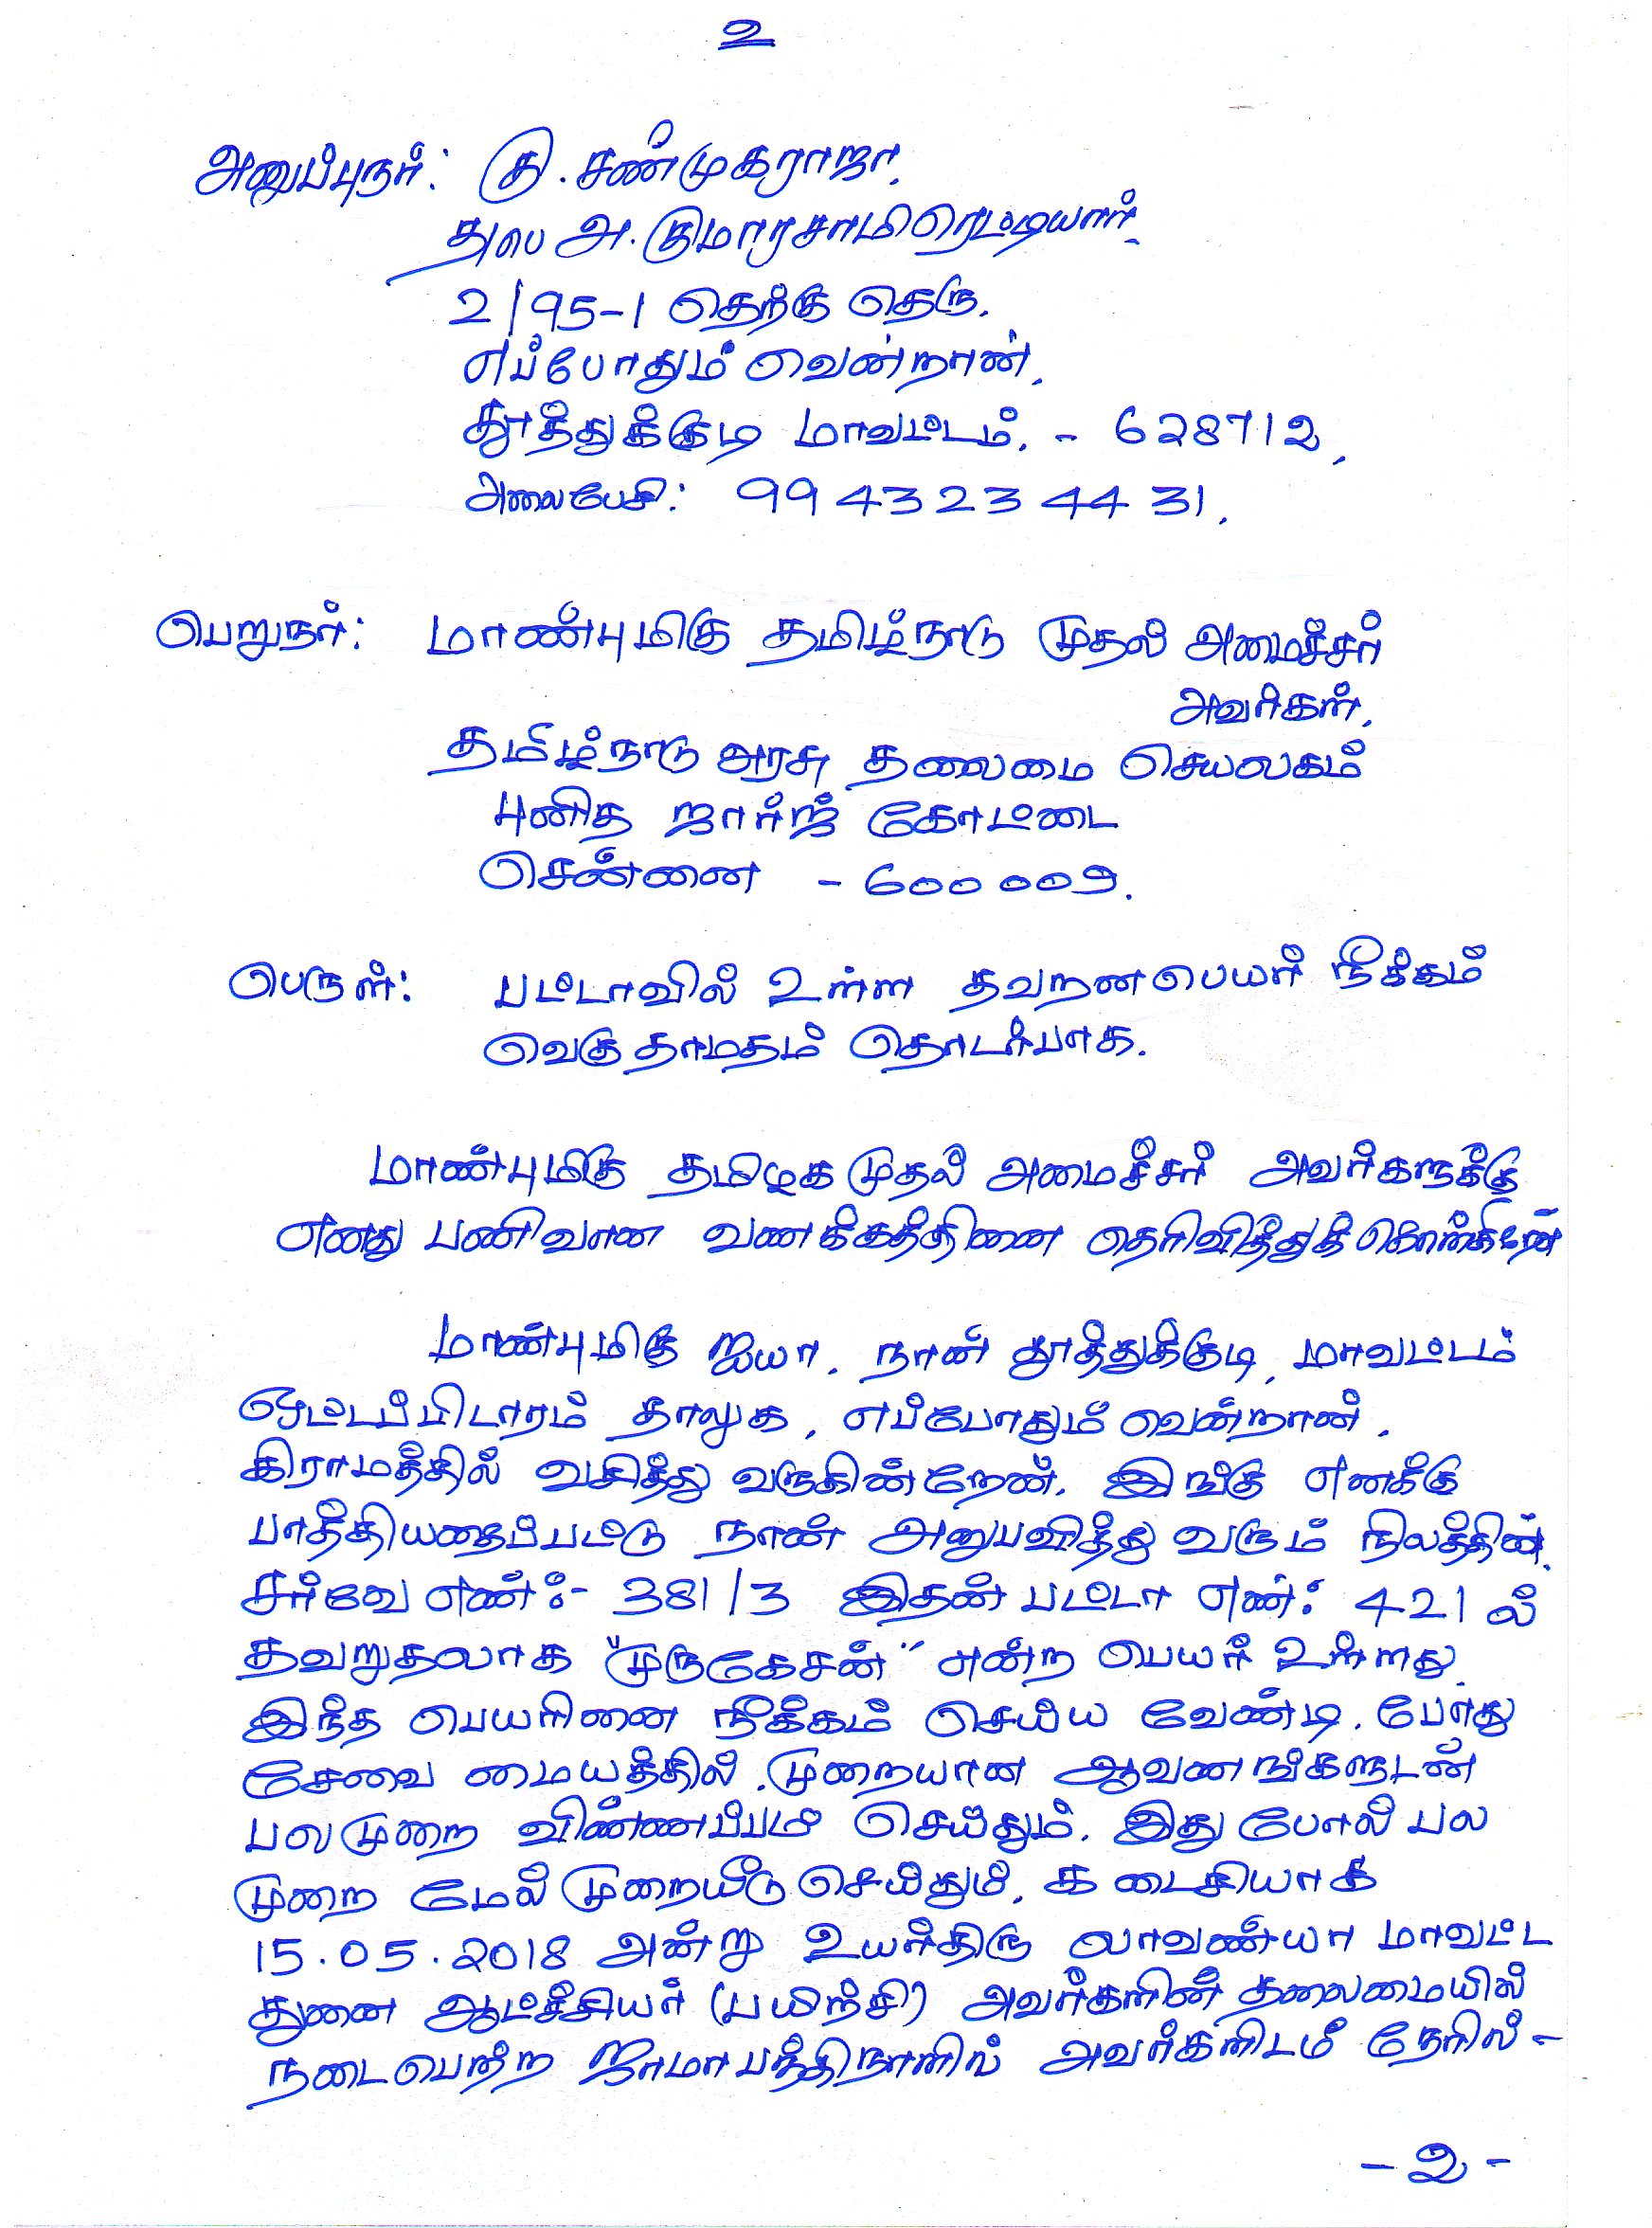 உ
அனுப்புநர்: கு. சண்முகராஜா,
த/பெ அ. குமாரசாமிரெட்டியார்,
2/95-1 தெற்கு தெரு,
எப்போதும் வென்றான்,
தூத்துக்குடி மாவட்டம். - 628712,
அலைபேசி: 99 432 3 44 31,
பெறுநர்: மாண்புமிகு தமிழ்நாடு முதல் அமைச்சர்
அவர்கள்,
தமிழ்நாடு அரசு தலைமை செயலகம்
புனித ஜார்ஜ் கோட்டை
சென்னை - 600 009.
பெருள்: பட்டாவில் உள்ள தவறன பெயர் நீக்கம்
வெகு தாமதம் தொடர்பாக.
மாண்புமிகு தமிழக முதல் அமைச்சர் அவர்களுக்கு
எனது பணிவான வணக்கத்தினை தெரிவித்துக் கொள்கிறேன்
மாண்புமிகு ஐயா, நான் தூத்துக்குடி, மாவட்டம்
ஓட்டப்பிடாரம் தாலுக, எப்போதும் வென்றான்,
கிராமத்தில் வசித்து வருகின்றேன். இங்கு எனக்கு
பாத்தியதைப்பட்டு நான் அனுபவித்து வரும் நிலத்தின்,
சர்வே எண்:- 381/3 இதன் பட்டா எண்: 421 ல்
தவறுதலாக "முருகேசன்" என்ற பெயர் உள்ளது.
இந்த பெயரினை நீக்கம் செய்ய வேண்டி, போது
சேவை மையத்தில், முறையான ஆவணங்களுடன்
பலமுறை விண்ணப்பம் செய்தும், இது போல் பல
முறை மேல் முறையீடு செய்தும், கடைசியாக
15.05.2018 அன்று உயர்திரு லாவண்யா மாவட்ட
துணை ஆட்சியர் (பயிற்சி) அவர்களின் தலைமையில்
நடைபெற்ற ஜாமாபந்திநாளில் அவர்களிடம் நேரில் -
- 2 -